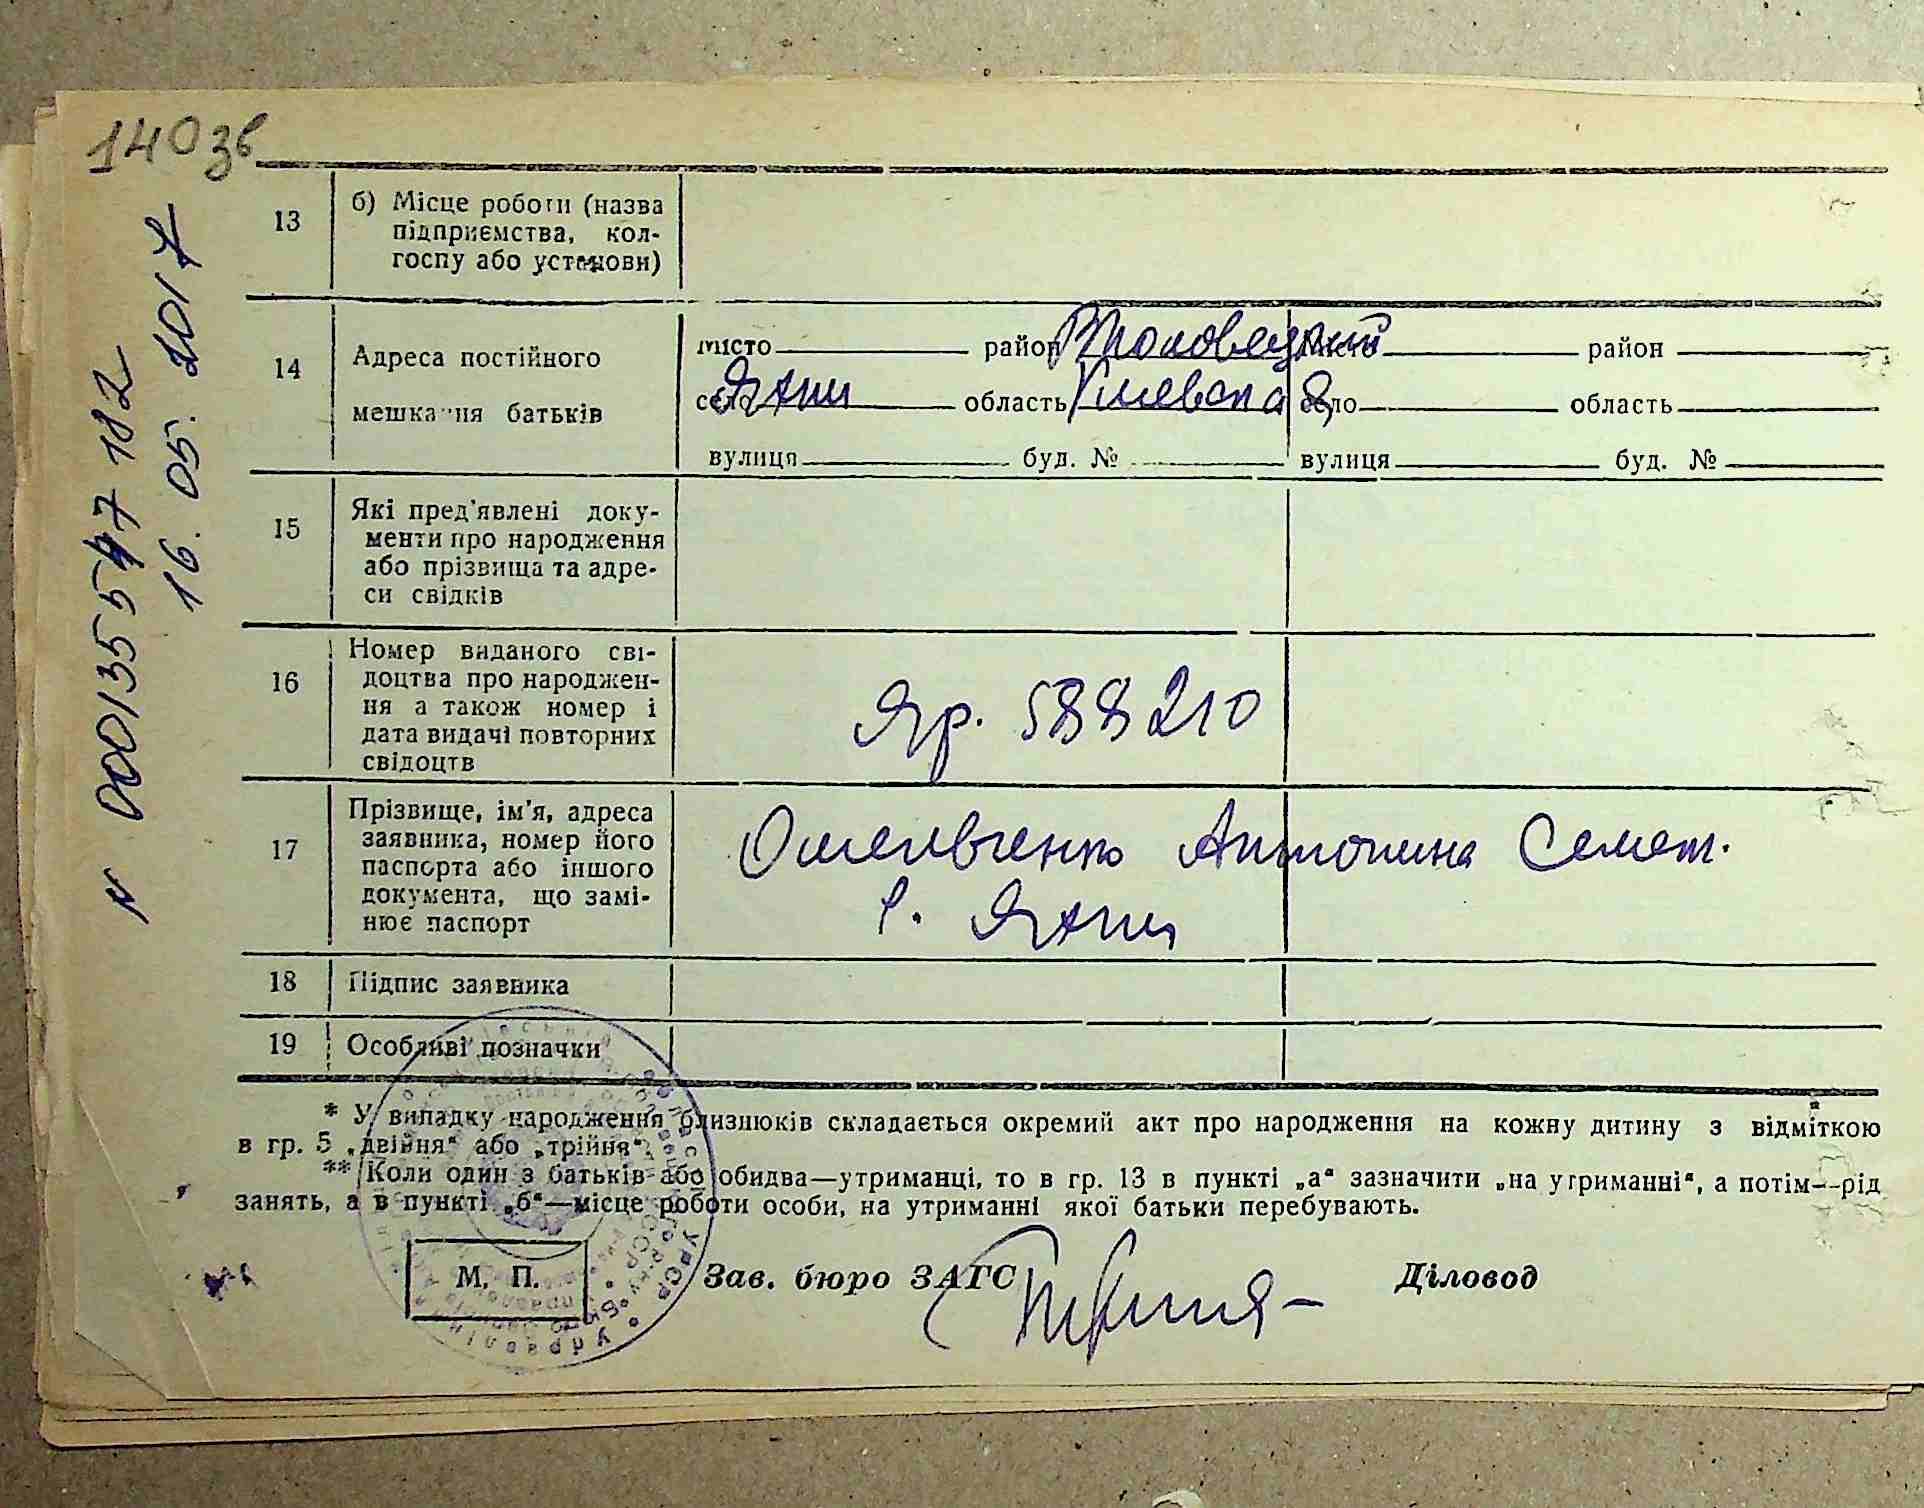 140зв
N 00013555477182
16. 05. 2017
13 б) Місце роботи (назва
підприємства, кол-
госпу або установи)
14 Адреса постійного
мешкання батьків
місто район місто район
село Ягани область село область
вулиця буд. № вулиця буд. №
15 Які пред'явлені доку-
менти про народження
або прізвища та адре-
си свідків
16 Номер виданого сві-
доцтва про народжен-
ня а також номер і
дата видачі повторних
свідоцтв
588210
17 Прізвище, ім'я, адреса
заявника, номер його
паспорта або іншого
документа, що замі-
нює паспорт
Омельченко Антонина Семен.
с.
18 Підпис заявника
19 Особливі позначки
* У випадку народження близнюків складається окремий акт про народження на кожну дитину з відміткою
в гр. 5 „двійня“ або „трійня“.
** Коли один з батьків або обидва—утриманці, то в гр. 13 в пункті „а“ зазначити „на утриманні“, а потім—рід
занять, а в пункті „б“—місце роботи особи, на утриманні якої батьки перебувають.
М. П.
Зав. бюро ЗАГС Діловод